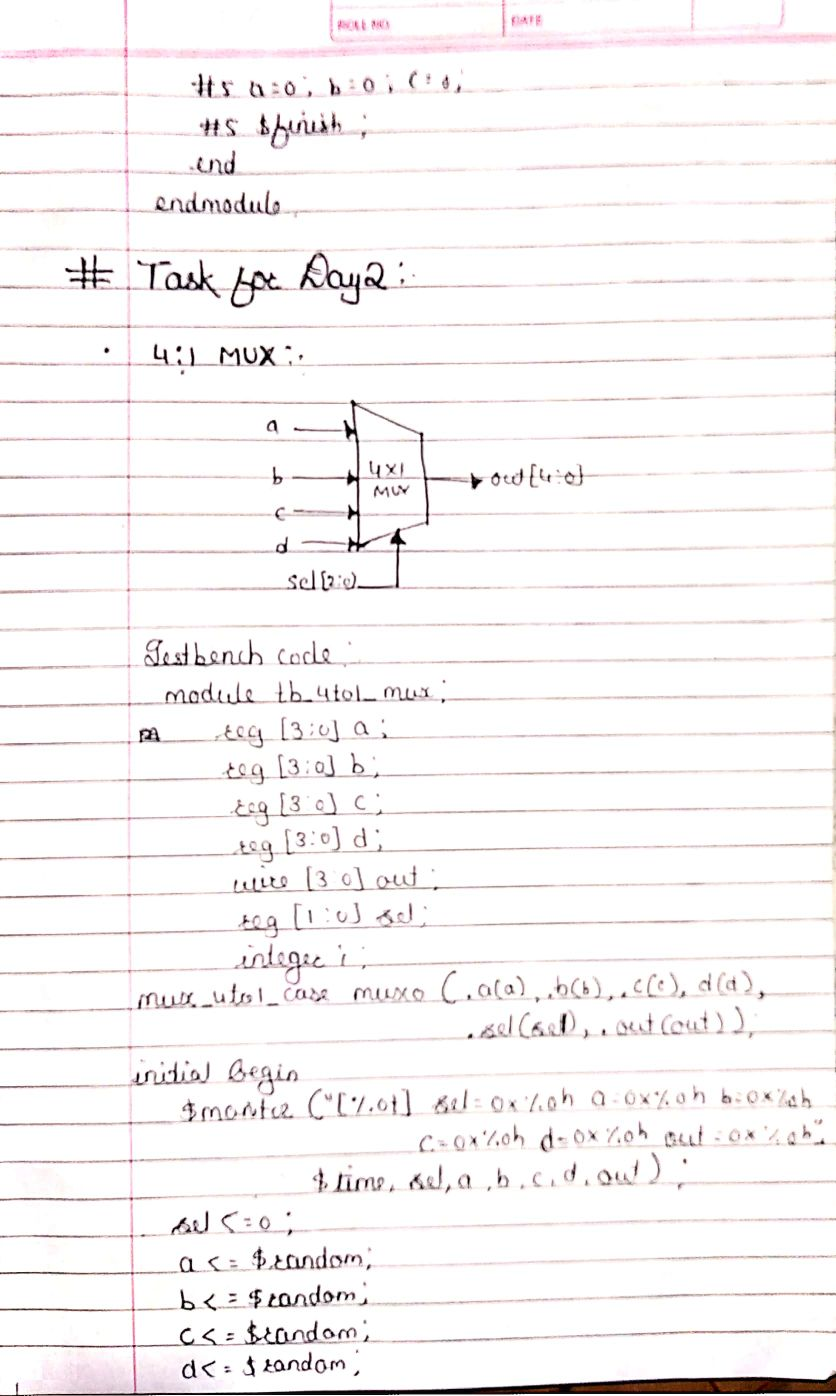 ROLL NO.
DATE
#5 a=0; b=0; c=0;
#5 $finish;
end
endmodule
# Task for Day2:
. 4:1 MUX:.
a
b
c
d
4x1
MUX
out[4:0]
sel[2:0]
Testbench code:
module tb_4to1_mux;
reg [3:0] a;
reg [3:0] b;
reg [3:0] c;
reg [3:0] d;
wire [3:0] out;
reg [1:0] sel;
integer i;
mux_4to1_case mux0 (.a(a), .b(b), .c(c), d(d),
.sel(sel), .out(out));
initial Begin
("[%0t] sel=0x%0h a=0x%0h b=0x%0h
c=0x%0h d=0x%0h out=0x%0h",
$time, sel, a, b, c, d, out);
sel <= 0;
a <= $random;
b <= $random;
c <= $random;
d <= $random;